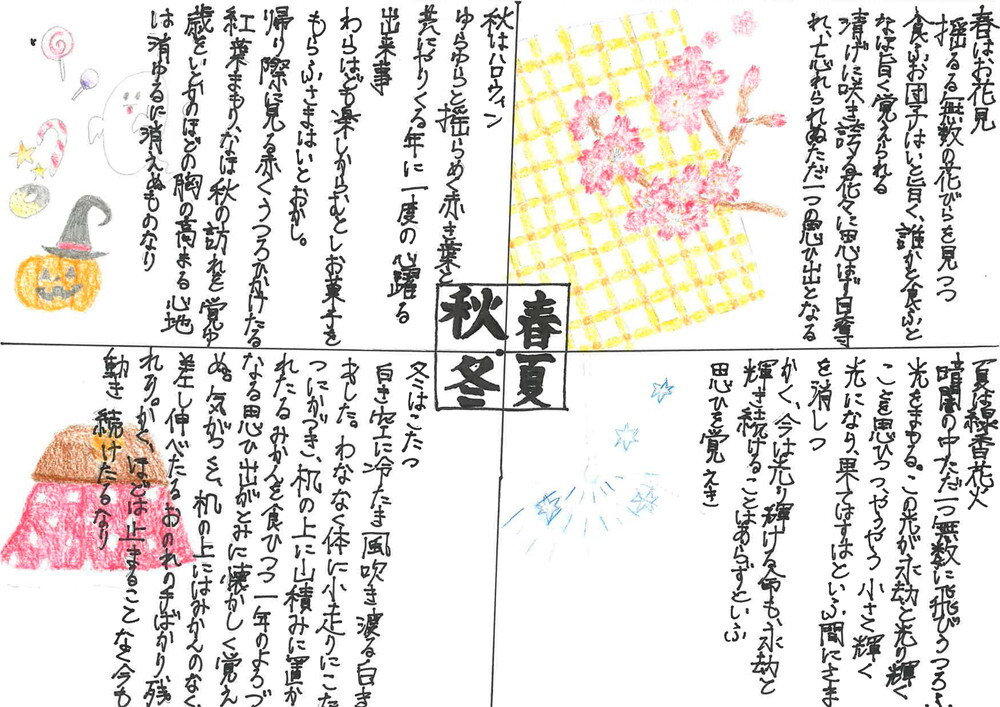 春夏
秋・冬
春はお花見
揺るる無数の花びらを見つつ
食ふお団子はいと旨く、誰かと食ふと
なほ旨く覚えられる
清げに咲き誇る花々に思はず目奪
れ、忘れられぬただ一つの思ひ出となる
夏は線香花火
暗闇の中ただ一つ無数に飛びうつろふ
光をまもる。この光が永劫と光り輝く
ことを思ひつつ、やうやう小さく輝く
光になり、果てはすはといふ間にさま
を消しつ
かく、今は光り輝ける命も、永劫と
輝き続けることはあらずといふ
思ひを覚えき
秋はハロウィン
ゆらゆらと揺らめく赤き葉と
共にやりくる年に一度の心躍る
出来事
わらはども楽しからむとしお菓子を
もらふさまはいとおかし。
帰り際に見る赤くうつろひかけたる
紅葉まもりなほ秋の訪れを覚ゆ
歳をいとどのほどの胸の高まる心地
は消ゆるに消えぬものなり
冬はこたつ
白き空に冷たき風吹き渡る白き
わななく体に小走りにこた
つにかづき、机の上に山積みに置か
れたるみかんを食ひつつ一年のよろづ
なる思ひ出がとみに懐かしく覚え
ぬ。気がつくと、机の上にはみかんのなく、
差し伸べたるおのれの手ばかり残
れり。かく、ほどは止まることなく今も
動き続けたるなり